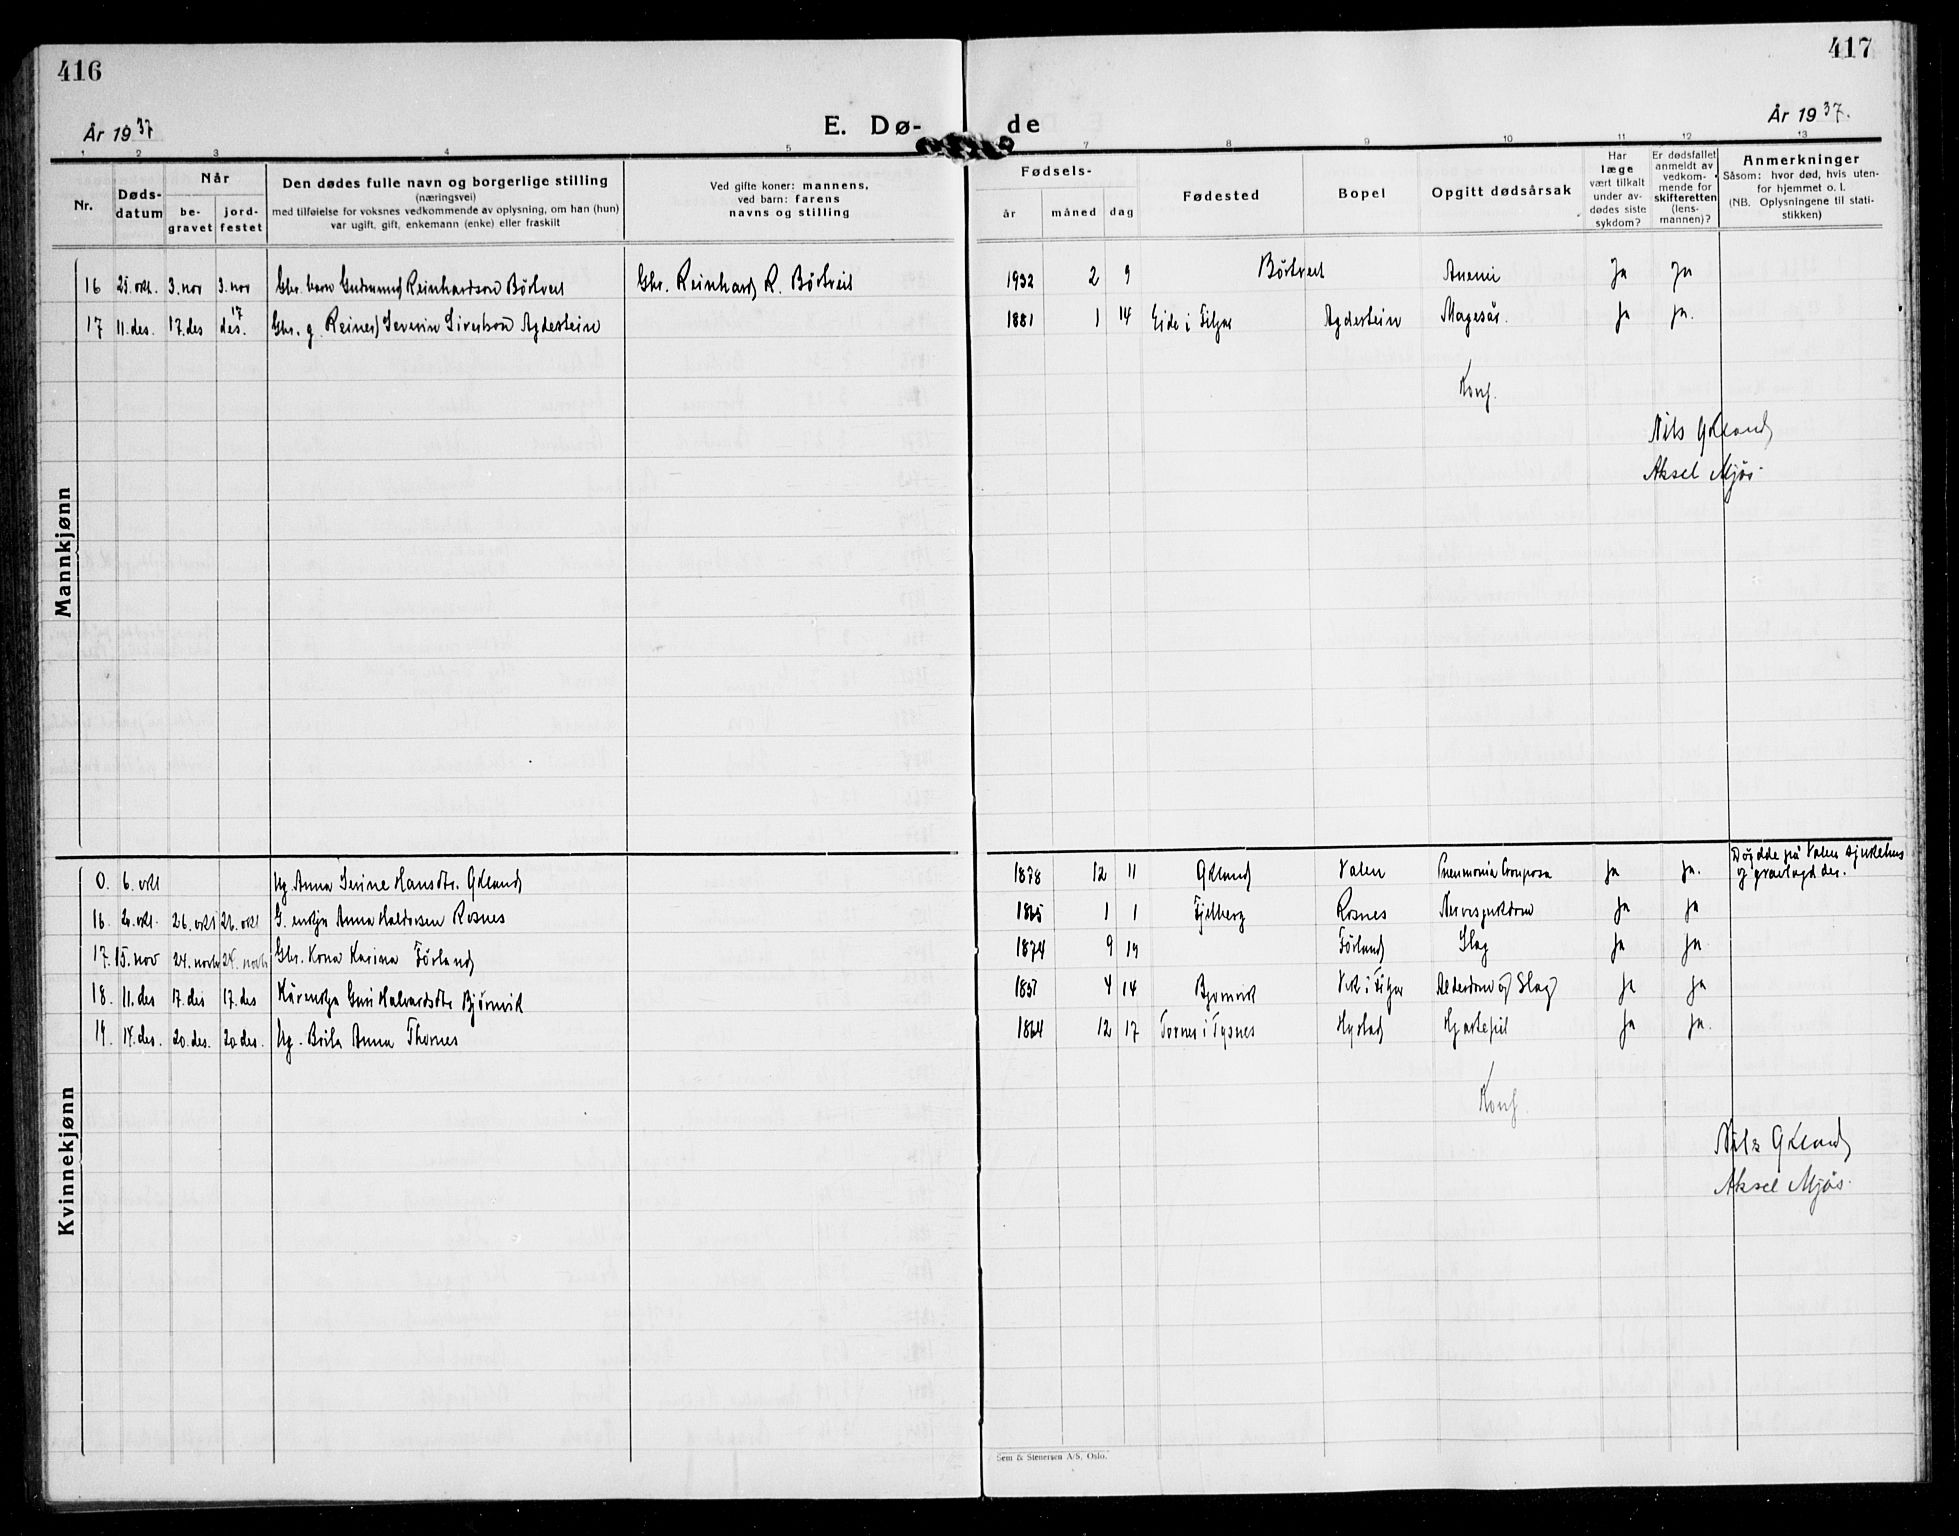 416
417
År 1937
E. Dø-
de
År 1937.
1 2 3 4 5 7 8 9 10 11 12 13
Nr.
Døds-
datum
Når
be-
gravet
jord-
festet
Den dødes fulle navn og borgerlige stilling
(næringsvei)
med tilføielse for voksnes vedkommende av oplysning, om han (hun)
var ugift, gift, enkemann (enke) eller fraskilt
Ved gifte koner: mannens,
ved barn: farens
navns og stilling
Fødsels-
år måned dag
Fødested
Bopel
Opgitt dødsårsak
Har
læge
vært tilkalt
under av-
dødes siste
sykdom?
Er dødsfallet
anmeldt av
vedkom-
mende for
skifteretten
(lens-
mannen)?
Anmerkninger
Såsom: hvor død, hvis uten-
for hjemmet o. l.
(NB. Oplysningene til stati-
stikken)
Mannkjønn
16 25. okt. 3. nov 3. nov Gbr. barn Gudmund Reinhardson Börtveit Gbr. Reinhard R. Börtveit 1932 2 9 Börtveit Anemi Ja Ja
17 11. des. 17. des 17 des. Gbr. g. Reinert Severin Sivertson Agdestein 1881 1 14 Eide i Fitjar Agdestein Magesår. Ja Ja.
Konf.
Nils Økland
Aksel Mjös.
Kvinnekjønn
0. 6. okt Ug. Anna Serine Hansdtr. Økland 1878 12 11 Økland Valen Pneumonia Crouposa Ja Ja. Döydde på Valen sjukehus
og gravlagd der.
16. 26. okt 26. okt G. enkja Anna Haldorsen Rosnes 1865 1 1 Fjelberg Rosnes Nervesjukdom Ja Ja
17. 15. nov 24. novbr 24. novbr Gbr. Kona Karina Förland 1874 9 19 Förland Slag Ja Ja.
18. 11. des 17. des 17. des Kårenkja Guri Halvardsdtr Bjørnvik 1851 4 14 Bjornvik Vik i Fitjar Alderdom og Slag Ja Ja
19. 14. des. 20. des. 20. des. Ug. Brita Anna Thornes 1864 12 17 Tornes i Tysnes Hystad Hjartefeil Ja Ja.
Konf.
Nils Økland
Aksel Mjös.
Sem & Stenersen A/S, Oslo.